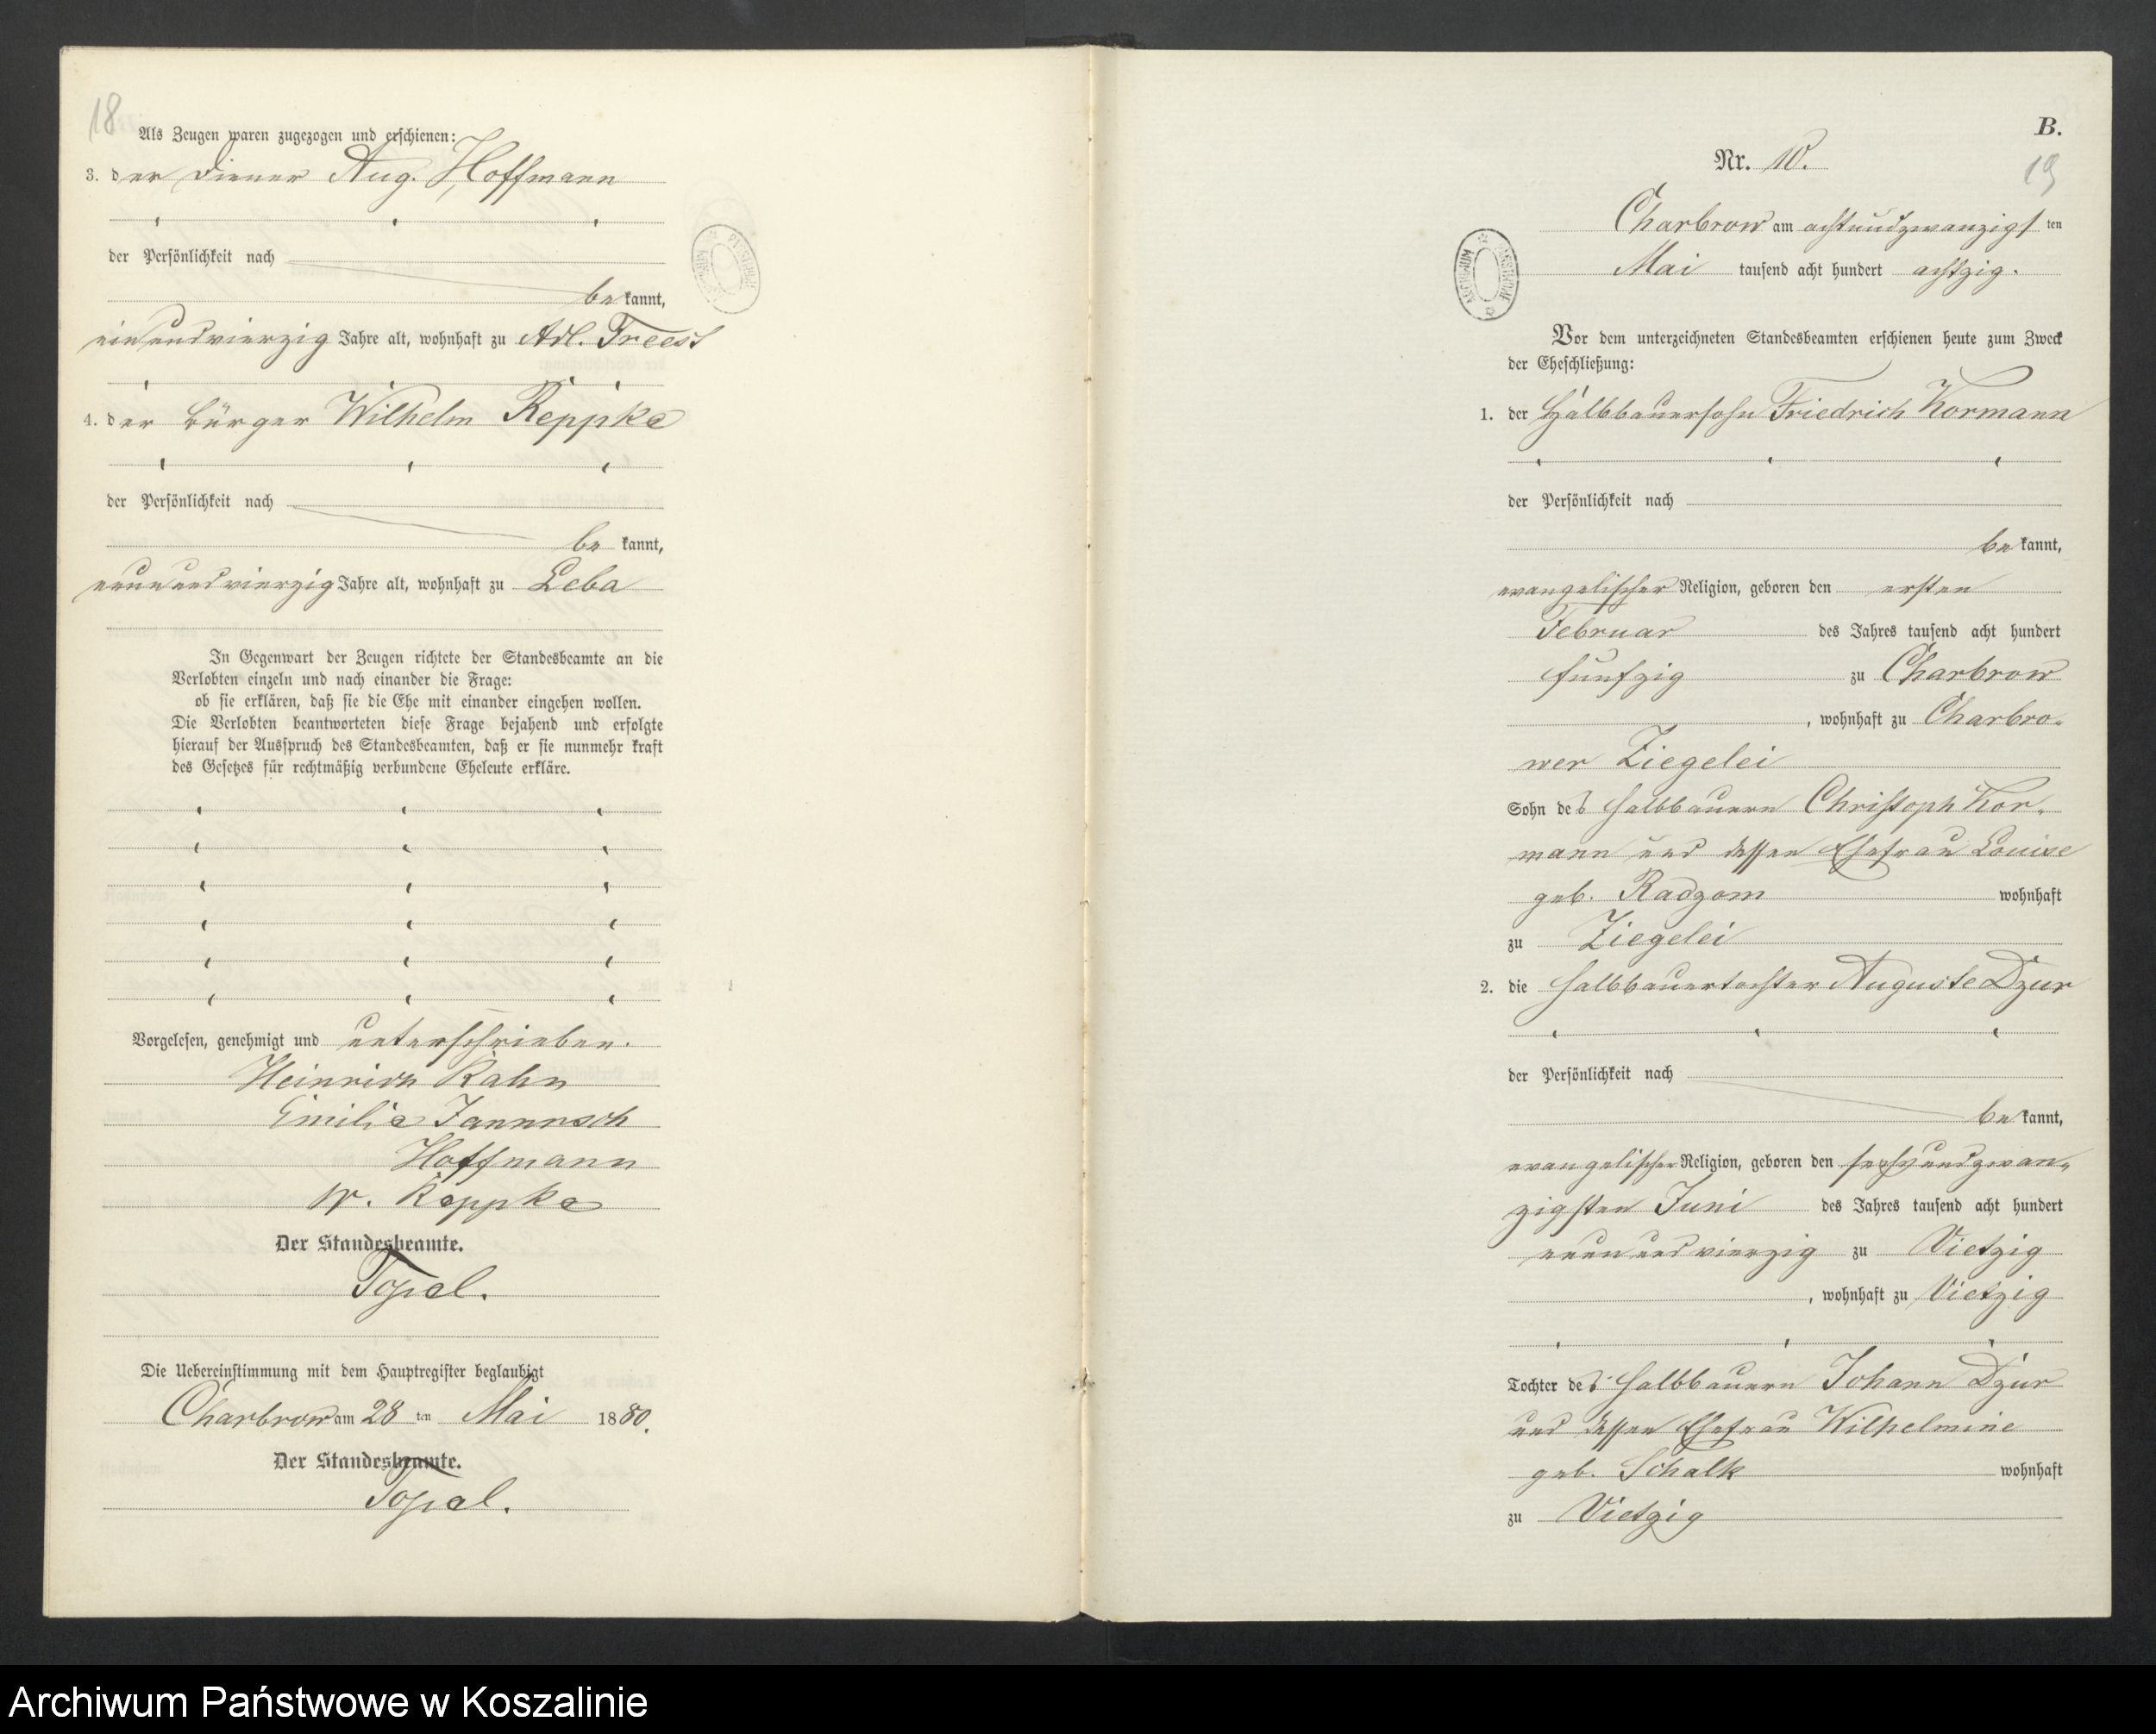 18
Als Zeugen waren zugezogen und erschienen:
3. der Diener Aug. Hoffmann
der Persönlichkeit nach
be kannt,
einundvierzig Jahre alt, wohnhaft zu Adl. Freest
4. der Bürger Wilhelm Reppke
der Persönlichkeit nach
be kannt,
neunundvierzig Jahre alt, wohnhaft zu Leba
In Gegenwart der Zeugen richtete der Standesbeamte an die
Verlobten einzeln und nach einander die Frage:
ob sie erklären, daß sie die Ehe mit einander eingehen wollen.
Die Verlobten beantworteten diese Frage bejahend und erfolgte
hierauf der Ausspruch des Standesbeamten, daß er sie nunmehr kraft
des Gesetzes für rechtmäßig verbundene Eheleute erkläre.
Vorgelesen, genehmigt und unterschrieben.
Heinrich Rahn
Emilie
Hoffmann
W. Reppke
Der Standesbeamte.
Der Standesbeamte.
Die Uebereinstimmung mit dem Hauptregister beglaubigt
Charbrow am 28 ten Mai 1880.
B.
Nr. 10.
19
Charbrow am achtundzwanzigst ten
Mai tausend acht hundert achtzig.
Vor dem unterzeichneten Standesbeamten erschienen heute zum Zweck
der Eheschließung:
1. der Halbbauersohn Friedrich Kormann
der Persönlichkeit nach
be kannt,
evangelischer Religion, geboren den ersten
Februar des Jahres tausend acht hundert
funfzig zu Charbrow
, wohnhaft zu Charbro-
wer Ziegelei
Sohn des Halbbauern Christoph Kor-
mann und dessen Ehefrau Louise
geb. Radzom wohnhaft
zu Ziegelei
2. die Halbbauertochter Auguste Dzur
der Persönlichkeit nach
be kannt,
evangelischer Religion, geboren den sechsundzwan-
zigsten Juni des Jahres tausend acht hundert
neunundvierzig zu Vietzig
, wohnhaft zu Vietzig
Tochter des Halbbauern Johann Dzur
und dessen Ehefrau Wilhelmine
geb. Schalk wohnhaft
zu Vietzig
Archiwum Państwowe w Koszalinie